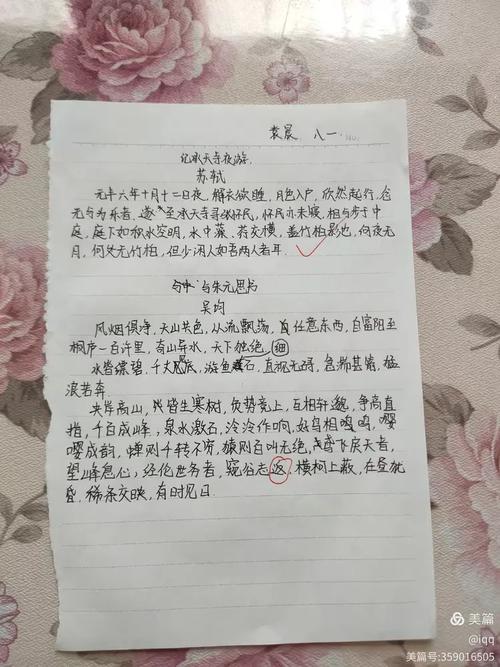 袁晨 八一
忆承天寺夜游.
苏轼
元丰六年十月十二日夜, 解衣欲睡, 月色入户, 欣然起行, 念
无与为乐者. 遂至承天寺寻张怀民, 怀民亦未寝, 相与步于中
庭, 庭下如积水空明, 水中藻、荇交横, 盖竹柏影也, 何夜无
月, 何处无竹柏, 但少闲人如吾两人者耳.
与朱元思书
吴均
风烟俱净, 天山共色, 从流飘荡, 任意东西, 自富阳至
桐庐一百许里, 奇山异水, 天下独绝, 细
水皆缥碧. 千丈见底, 游鱼石, 直视无碍, 急湍甚箭, 猛
浪若奔.
夹岸高山, 皆生寒树, 负势竞上, 互相轩邈, 争高直
指, 千百成峰, 泉水激石, 泠泠作响, 好鸟相鸣, 嘤
嘤成韵, 蝉则千转不穷, 猿则百叫无绝, 鸢飞戾天者,
望峰息心, 经伦世务者, 窥谷忘返, 横柯上蔽, 在昼犹
昏. 疏条交映, 有时见日.
美篇
@iqq
美篇号:359016505